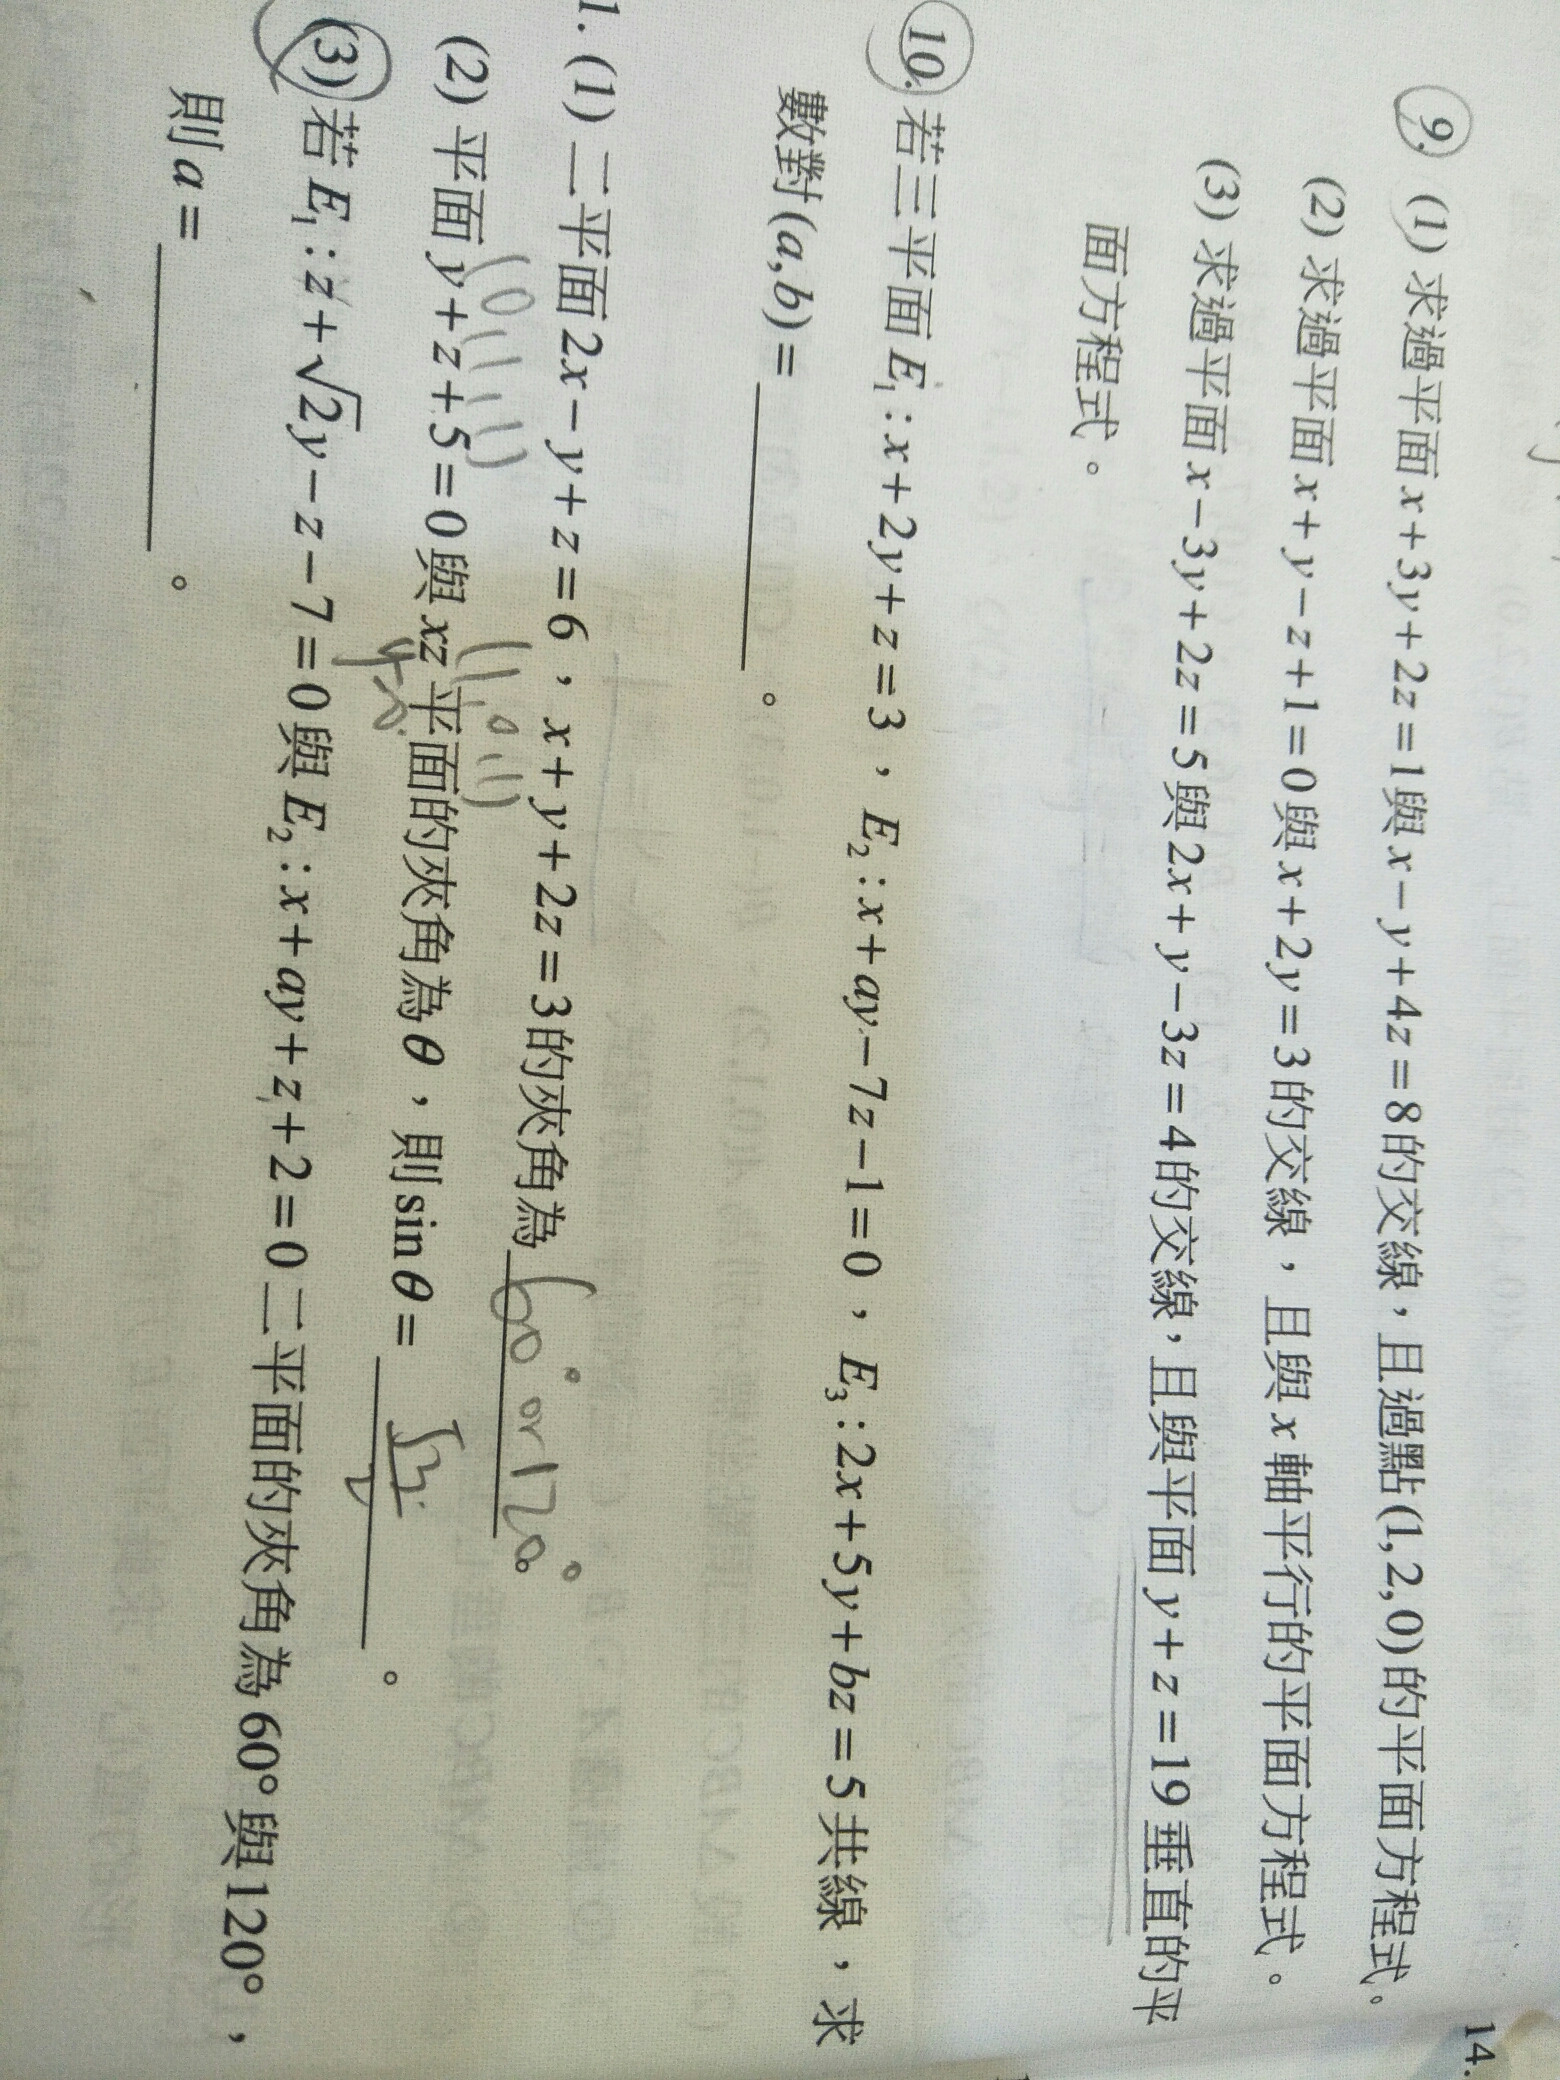 14.
9. (1) 求過平面 x+3y+2z=1與 x−y+4z=8的交線，且過點(1,2,0)的平面方程式。
(2) 求過平面 x+y−z+1=0與 x+2y=3的交線，且與 x 軸平行的平面方程式。
(3) 求過平面 x−3y+2z=5與 2x+y−3z=4的交線，且與平面 y+z=19垂直的平
面方程式。
10. 若三平面 E₁:x+2y+z=3，E₂:x+ay−7z−1=0，E₃:2x+5y+bz=5共線，求
數對(a,b)=
1. (1) 二平面 2x−y+z=6，x+y+2z=3的夾角為 60° or 120°。
(0,1,1) (1,0,1)
(2) 平面 y+z+5=0與 xz 平面的夾角為 θ，則sin θ= √2/2。
y=0
(3) 若 E₁:z+√2y−z−7=0與 E₂:x+ay+z+2=0二平面的夾角為 60°與120°，
則 a=　　。